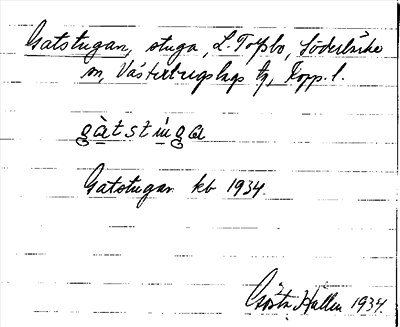 Gatstugan, stuga, L. Torsbo, Söderbärke
sn, Västerbergslags tg, Kopp. l.
gàtstùga
Gatstugan kb 1934.
Gösta Hallen 1934.